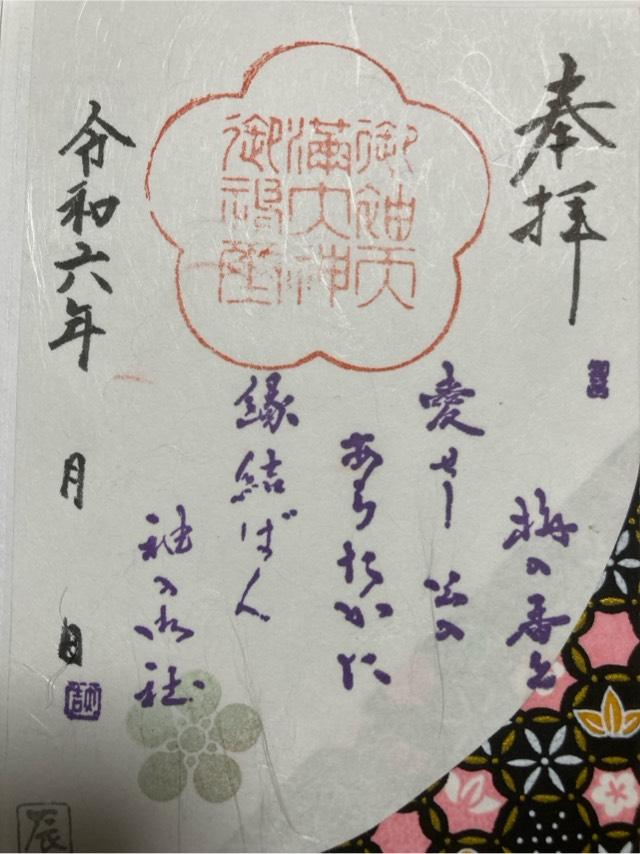 奉拝
御袖天
満大神
梅の香を
愛せし公の
あらたかに
縁結ばん
袖の御社
令和六年 月 日
辰